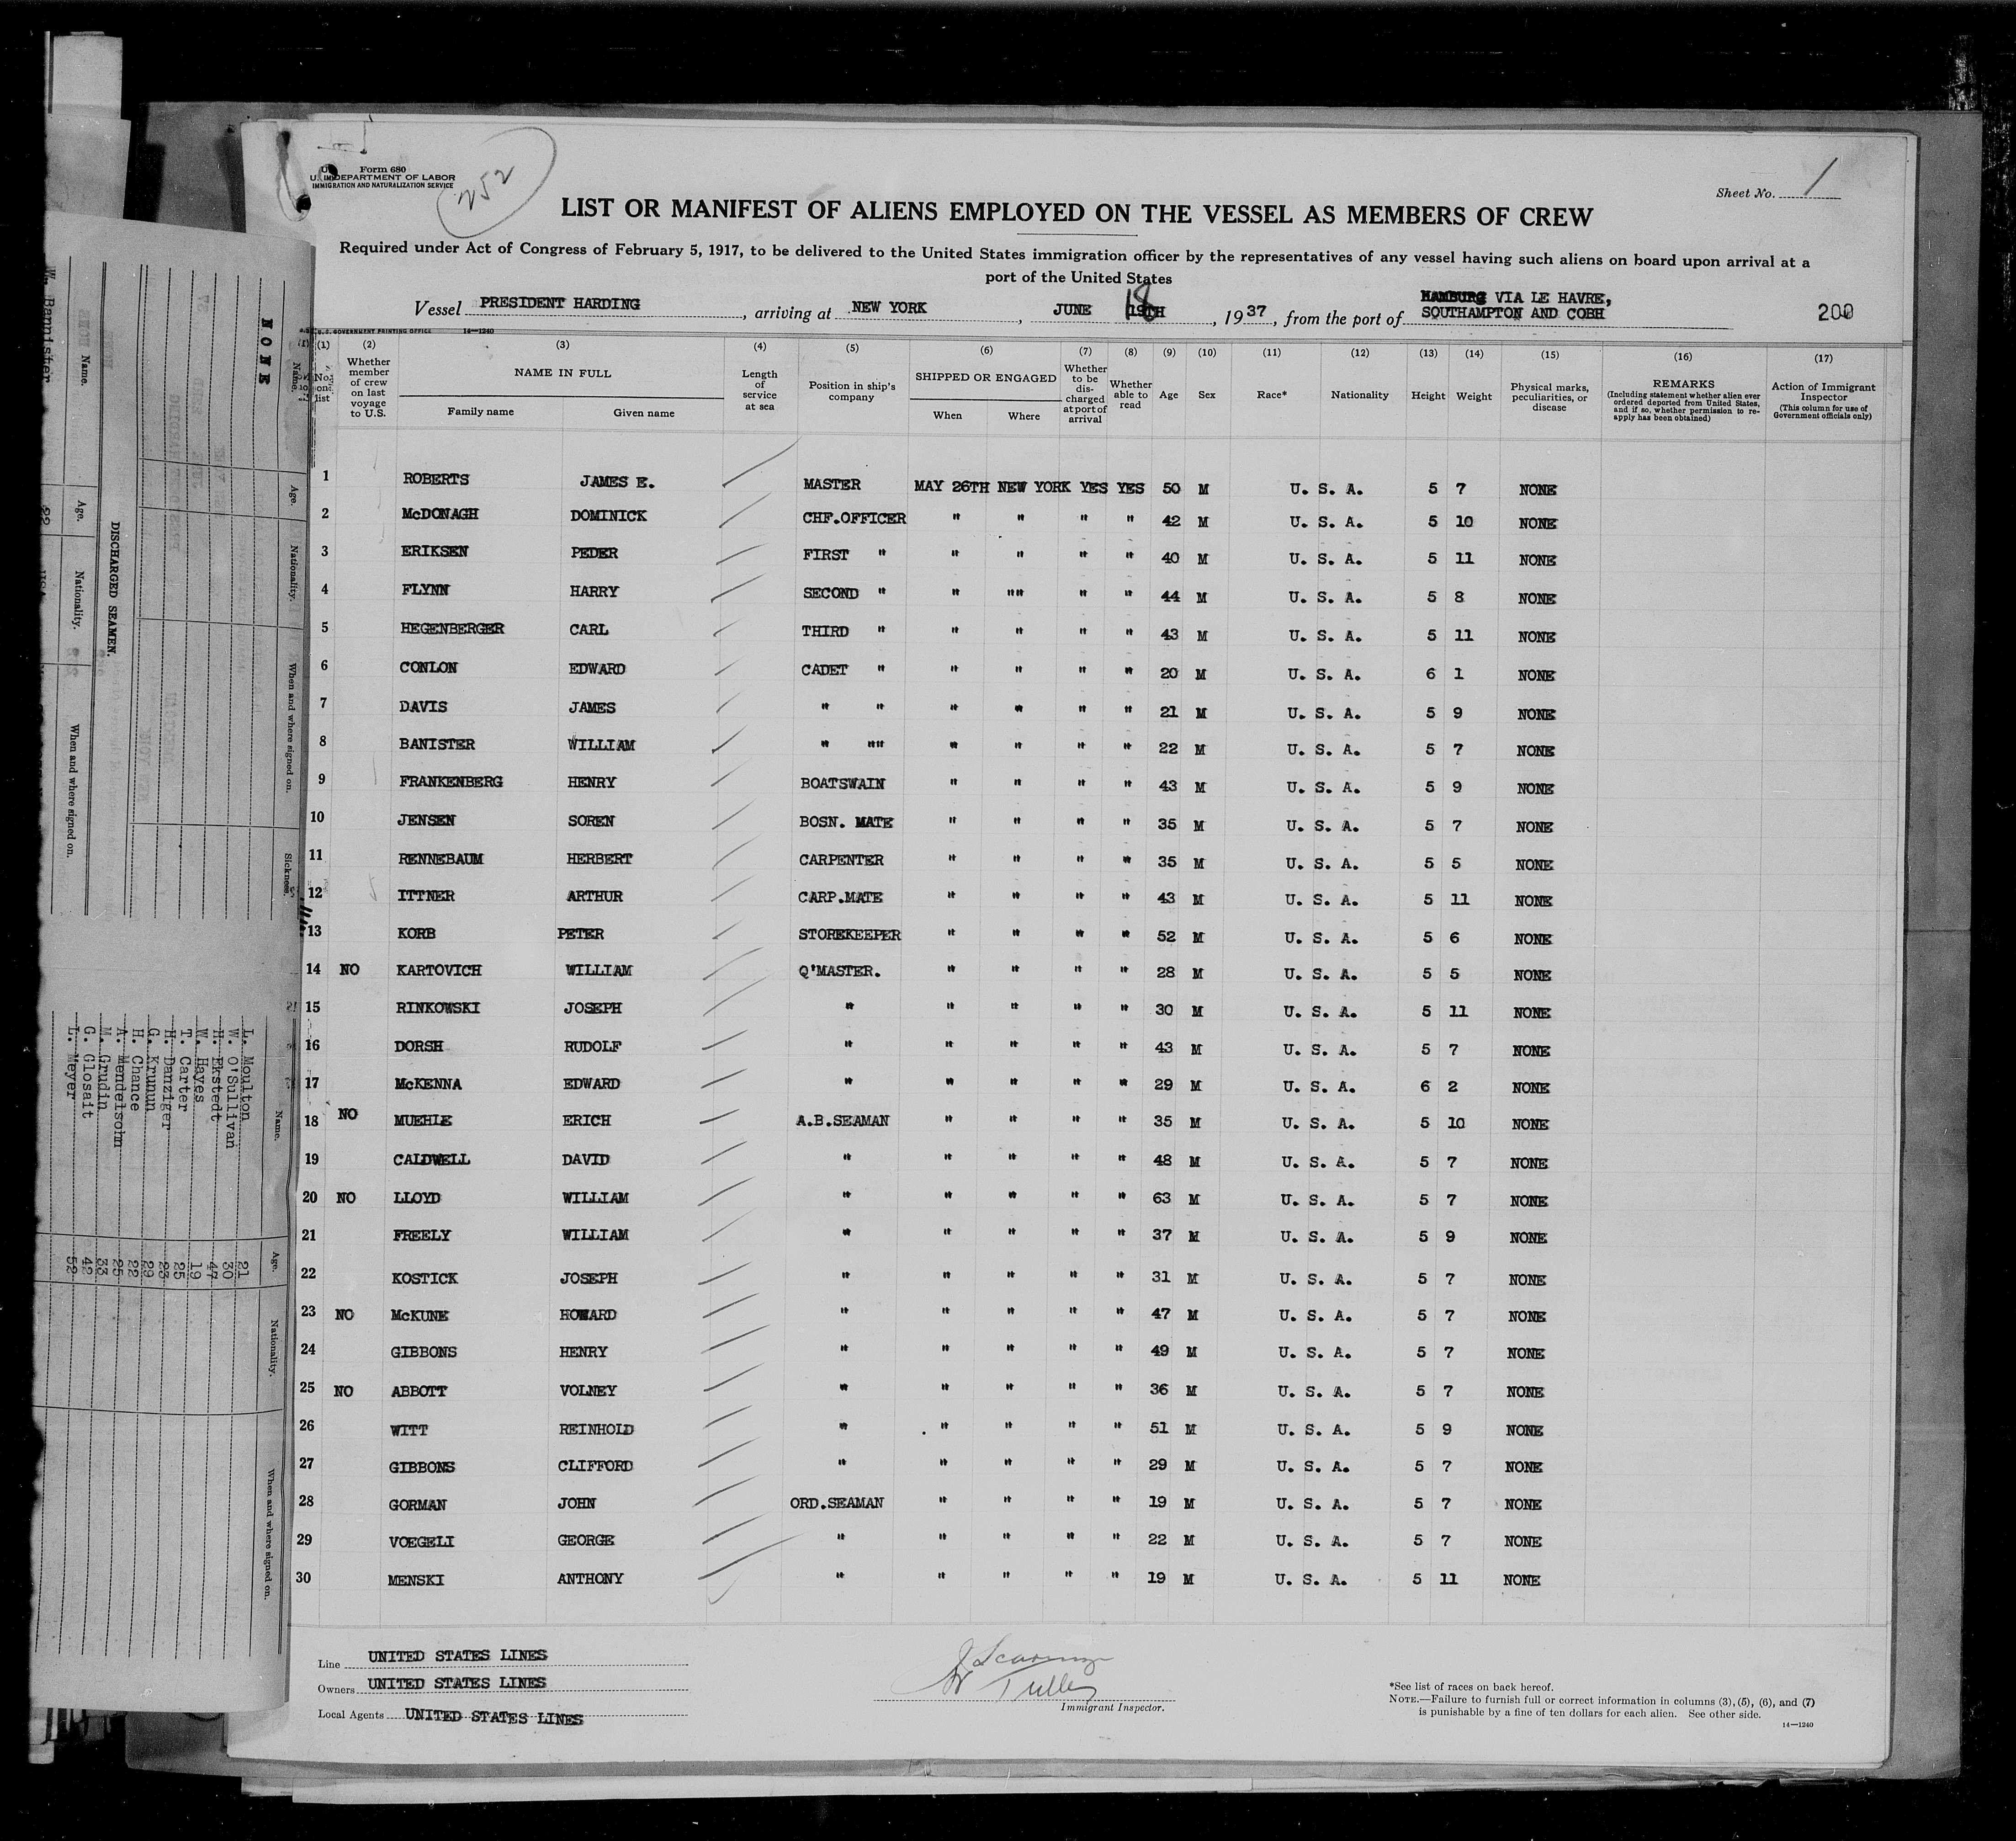 Form 680
U. S. DEPARTMENT OF LABOR
IMMIGRATION AND NATURALIZATION SERVICE
252
Sheet No. 1
LIST OR MANIFEST OF ALIENS EMPLOYED ON THE VESSEL AS MEMBERS OF CREW
Required under Act of Congress of February 5, 1917, to be delivered to the United States immigration officer by the representatives of any vessel having such aliens on board upon arrival at a
port of the United States
Vessel PRESIDENT HARDING, arriving at NEW YORK, JUNE 18, 1937, from the port of HAMBURG VIA LE HAVRE,
SOUTHAMPTON AND COBH
200
U.S. GOVERNMENT PRINTING OFFICE 14—1240
(1) (2) (3) (4) (5) (6) (7) (8) (9) (10) (11) (12) (13) (14) (15) (16) (17)
No. on list
Whether member of crew on last voyage to U.S.
NAME IN FULL
Family name Given name
Length of service at sea
Position in ship's company
SHIPPED OR ENGAGED
When Where
Whether to be discharged at port of arrival
Whether able to read
Age
Sex
Race*
Nationality
Height
Weight
Physical marks, peculiarities, or disease
REMARKS
(Including statement whether alien ever ordered deported from United States, and if so, whether permission to reapply has been obtained)
Action of Immigrant Inspector
(This column for use of Government officials only)
1 ROBERTS JAMES E. MASTER MAY 26TH NEW YORK YES YES 50 M U. S. A. 5 7 NONE
2 McDONAGH DOMINICK CHF.OFFICER " " " " 42 M U. S. A. 5 10 NONE
3 ERIKSEN PEDER FIRST " " " " " 40 M U. S. A. 5 11 NONE
4 FLYNN HARRY SECOND " " "" " " 44 M U. S. A. 5 8 NONE
5 HEGENBERGER CARL THIRD " " " " " 43 M U. S. A. 5 11 NONE
6 CONLON EDWARD CADET " " " " " 20 M U. S. A. 6 1 NONE
7 DAVIS JAMES " " " " " " 21 M U. S. A. 5 9 NONE
8 BANISTER WILLIAM " "" " " " " 22 M U. S. A. 5 7 NONE
9 FRANKENBERG HENRY BOATSWAIN " " " " 43 M U. S. A. 5 9 NONE
10 JENSEN SOREN BOSN. MATE " " " " 35 M U. S. A. 5 7 NONE
11 RENNEBAUM HERBERT CARPENTER " " " " 35 M U. S. A. 5 5 NONE
12 ITTNER ARTHUR CARP.MATE " " " " 43 M U. S. A. 5 11 NONE
13 KORB PETER STOREKEEPER " " " " 52 M U. S. A. 5 6 NONE
14 NO KARTOVICH WILLIAM Q'MASTER. " " " " 28 M U. S. A. 5 5 NONE
15 RINKOWSKI JOSEPH " " " " " 30 M U. S. A. 5 11 NONE
16 DORSH RUDOLF " " " " " 43 M U. S. A. 5 7 NONE
17 McKENNA EDWARD " " " " " 29 M U. S. A. 6 2 NONE
18 NO MUEHLE ERICH A.B.SEAMAN " " " " 35 M U. S. A. 5 10 NONE
19 CALDWELL DAVID " " " " " 48 M U. S. A. 5 7 NONE
20 NO LLOYD WILLIAM " " " " " 63 M U. S. A. 5 7 NONE
21 FREELY WILLIAM " " " " " 37 M U. S. A. 5 9 NONE
22 KOSTICK JOSEPH " " " " " 31 M U. S. A. 5 7 NONE
23 NO McKUNE HOWARD " " " " " 47 M U. S. A. 5 7 NONE
24 GIBBONS HENRY " " " " " 49 M U. S. A. 5 7 NONE
25 NO ABBOTT VOLNEY " " " " " 36 M U. S. A. 5 7 NONE
26 WITT REINHOLD " " " " " 51 M U. S. A. 5 9 NONE
27 GIBBONS CLIFFORD " " " " " 29 M U. S. A. 5 7 NONE
28 GORMAN JOHN ORD.SEAMAN " " " " 19 M U. S. A. 5 7 NONE
29 VOEGELI GEORGE " " " " " 22 M U. S. A. 5 7 NONE
30 MENSKI ANTHONY " " " " " 19 M U. S. A. 5 11 NONE
Line UNITED STATES LINES
Owners UNITED STATES LINES
Local Agents UNITED STATES LINES
Tulley
Immigrant Inspector.
*See list of races on back hereof.
NOTE.—Failure to furnish full or correct information in columns (3), (5), (6), and (7)
is punishable by a fine of ten dollars for each alien. See other side.
14—1240
Name. Age. Nationality. When and where signed on. Sickness.
NONE
DISCHARGED SEAMEN.
Name. Age. Nationality. When and where signed on.
Bannister 22
Name. Age. Nationality. When and where signed on.
L. Moulton 21
W. O'Sullivan 30
H. Ekstedt 47
W. Hayes 19
T. Carter 25
H. Danziger 23
G. Krumun 29
H. Chance 22
A. Mendelsohn 25
M. Grudin 33
G. Glosait 42
L. Meyer 52